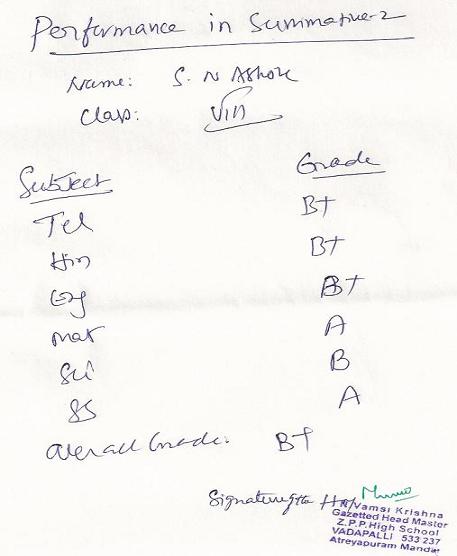 Performance in Summative-2
Name: S. N Ashok
Class: VIII
Subject Grade
Tel B+
Hin B+
Eng B+
Mat A
Sci B
SS A
Overall Grade: B+
Signature of the
Vamsi Krishna
Gazetted Head Master
Z.P.P.High School
VADAPALLI 533 237
Atreyapuram Mandal